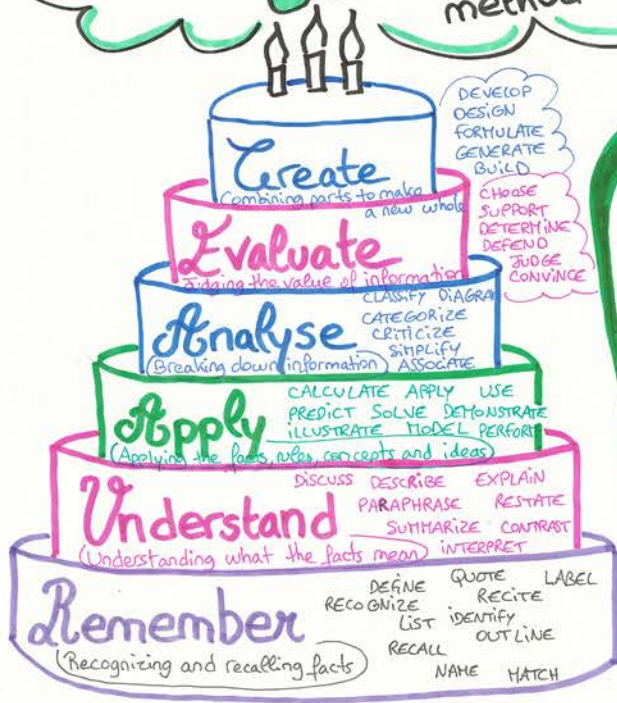 method
Create
Combining parts to make
a new whole
DEVELOP
DESIGN
FORMULATE
GENERATE
BUILD
Evaluate
Judging the value of information
CHOOSE
SUPPORT
DETERMINE
DEFEND
JUDGE
CONVINCE
Analyse
(Breaking down information)
CLASSIFY DIAGRA
CATEGORIZE
CRITICIZE
SIMPLIFY
ASSOCIATE
Apply
(Applying the facts, rules, concepts and ideas)
CALCULATE APPLY USE
PREDICT SOLVE DEMONSTRATE
ILLUSTRATE MODEL PERFORM
Understand
(Understanding what the facts mean)
DISCUSS DESCRIBE EXPLAIN
PARAPHRASE RESTATE
SUMMARIZE CONTRAST
INTERPRET
Remember
(Recognizing and recalling facts)
DEFINE QUOTE LABEL
RECOGNIZE RECITE
LIST IDENTIFY
OUTLINE
RECALL
NAME MATCH